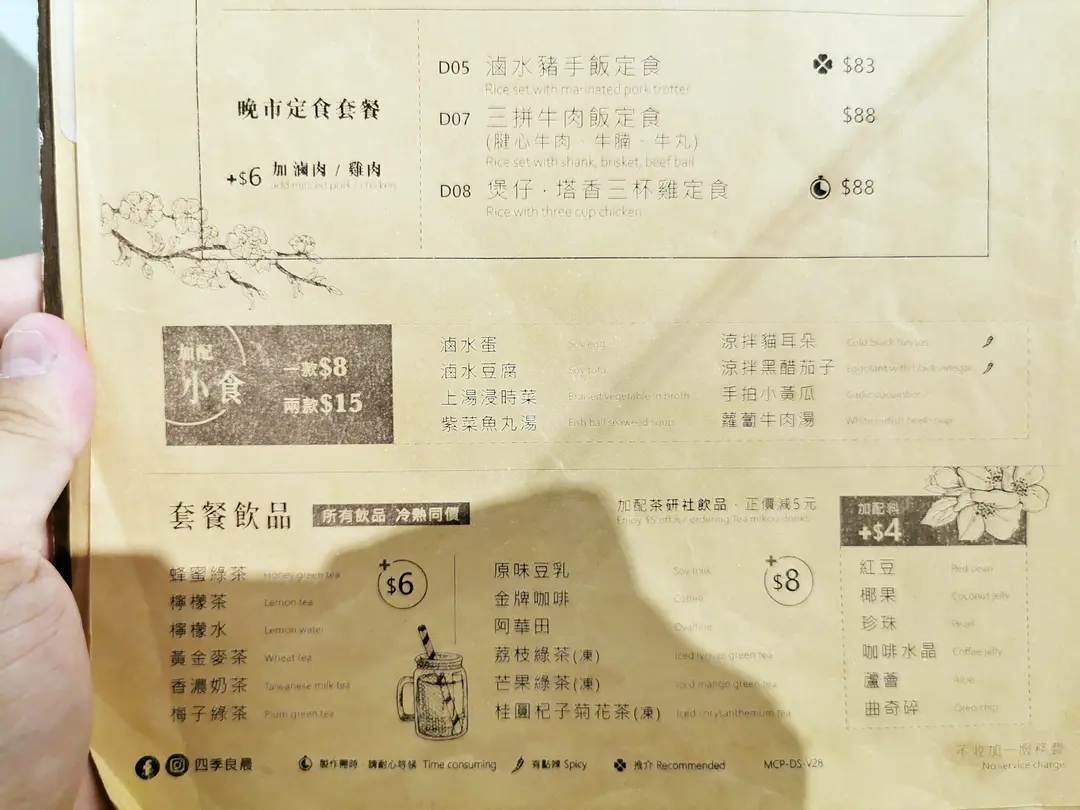 晚市定食套餐
+$6 加滷肉 / 雞肉
add minced pork / chicken
D05 滷水豬手飯定食 $83
Rice set with marinated pork trotter
D07 三拼牛肉飯定食 $88
(腱心牛肉、牛腩、牛丸)
Rice set with shank, brisket, beef ball
D08 煲仔·塔香三杯雞定食 $88
Rice with three cup chicken
加配
小食
一款$8
兩款$15
滷水蛋 Soy egg
滷水豆腐 Soy tofu
上湯浸時菜 Braised vegetable in broth
紫菜魚丸湯 Fish ball seaweed soup
涼拌貓耳朵 Cold black fungus
涼拌黑醋茄子 Eggplant with black vinegar
手拍小黃瓜 Garlic cucumber
蘿蔔牛肉湯
套餐飲品 所有飲品 冷熱同價
加配茶研社飲品、正價減5元
蜂蜜綠茶 Honey green tea
檸檬茶 Lemon tea
檸檬水 Lemon water
黃金麥茶 Wheat tea
香濃奶茶 Taiwanese milk tea
梅子綠茶 Plum green tea
+$6
原味豆乳 Soy milk
金牌咖啡 Coffee
阿華田 Ovaltine
荔枝綠茶(凍) Iced lychee green tea
芒果綠茶(凍) Iced mango green tea
桂圓杞子菊花茶(凍) Iced chrysanthemum tea
+$8
加配料
+$4
紅豆 Red bean
椰果 Coconut jelly
珍珠 Pearl
咖啡水晶 Coffee jelly
蘆薈 Aloe
曲奇碎 Oreo chip
四季良晨
製作需時 請耐心等候 Time consuming
有點辣 Spicy
推介 Recommended
MCP-DS-V28
不收加一服務費
No service charge